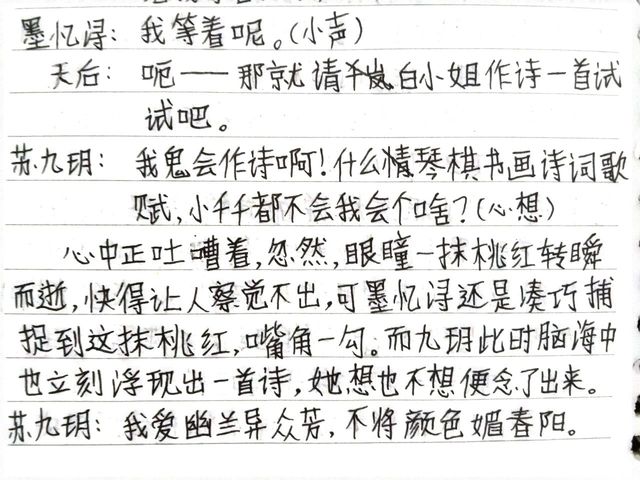 墨忆浔：我等着呢。（小声）
天后：呃——那就请千岚白小姐作诗一首试
试吧。
苏九玥：我鬼会作诗啊！什么情琴棋书画诗词歌
赋，小千千都不会我会个啥？（心想）
心中正吐嘈着，忽然，眼瞳一抹桃红转瞬
而逝，快得让人察觉不出，可墨忆浔还是凑巧捕
捉到这抹桃红，嘴角一勾。而九玥此时脑海中
也立刻浮现出一首诗，她想也不想便念了出来。
苏九玥：我爱幽兰异众芳，不将颜色媚春阳。